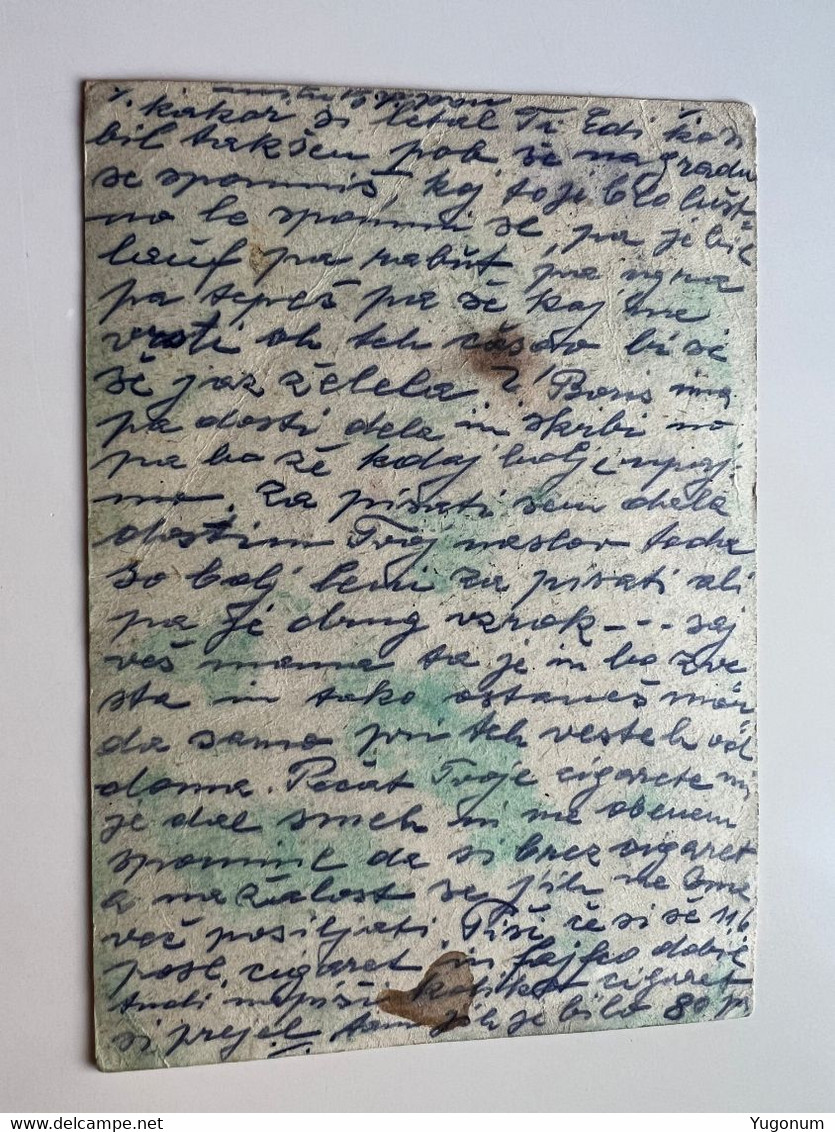 kakor si letal Ti Edi ko si
bil takšen pob še na gradu
se spomniš, kaj to je blo lušt
no le spomni se, pa je bil
lauf pa pa igra
pa tepeš pa še kaj me
vrsti oh teh časov bi si
še jaz želela. Boris ima
pa dosti dela in skrbi no
pa bo že kdaj bolj, upaj
mo. Za pisati sem dala
dostim Tvoj naslov toda
so bolj leni za pisati ali
pa je drug vzrok --- saj
veš mama ta je in bo zve
sta in tako ostaneš mor
da samo pri teh vesteh od
doma. Pečat Tvoje cigarete mi
je dal smeh in me obenem
spomnil da si brez cigaret
a na žalost se jih ne sme
več posiljati. Piši če si še 11.6
posl. cigaret in fajfco dobil
tudi napiši koliko cigaret
si prejel tam jih je bilo 80
delcampe.net
Yugonum